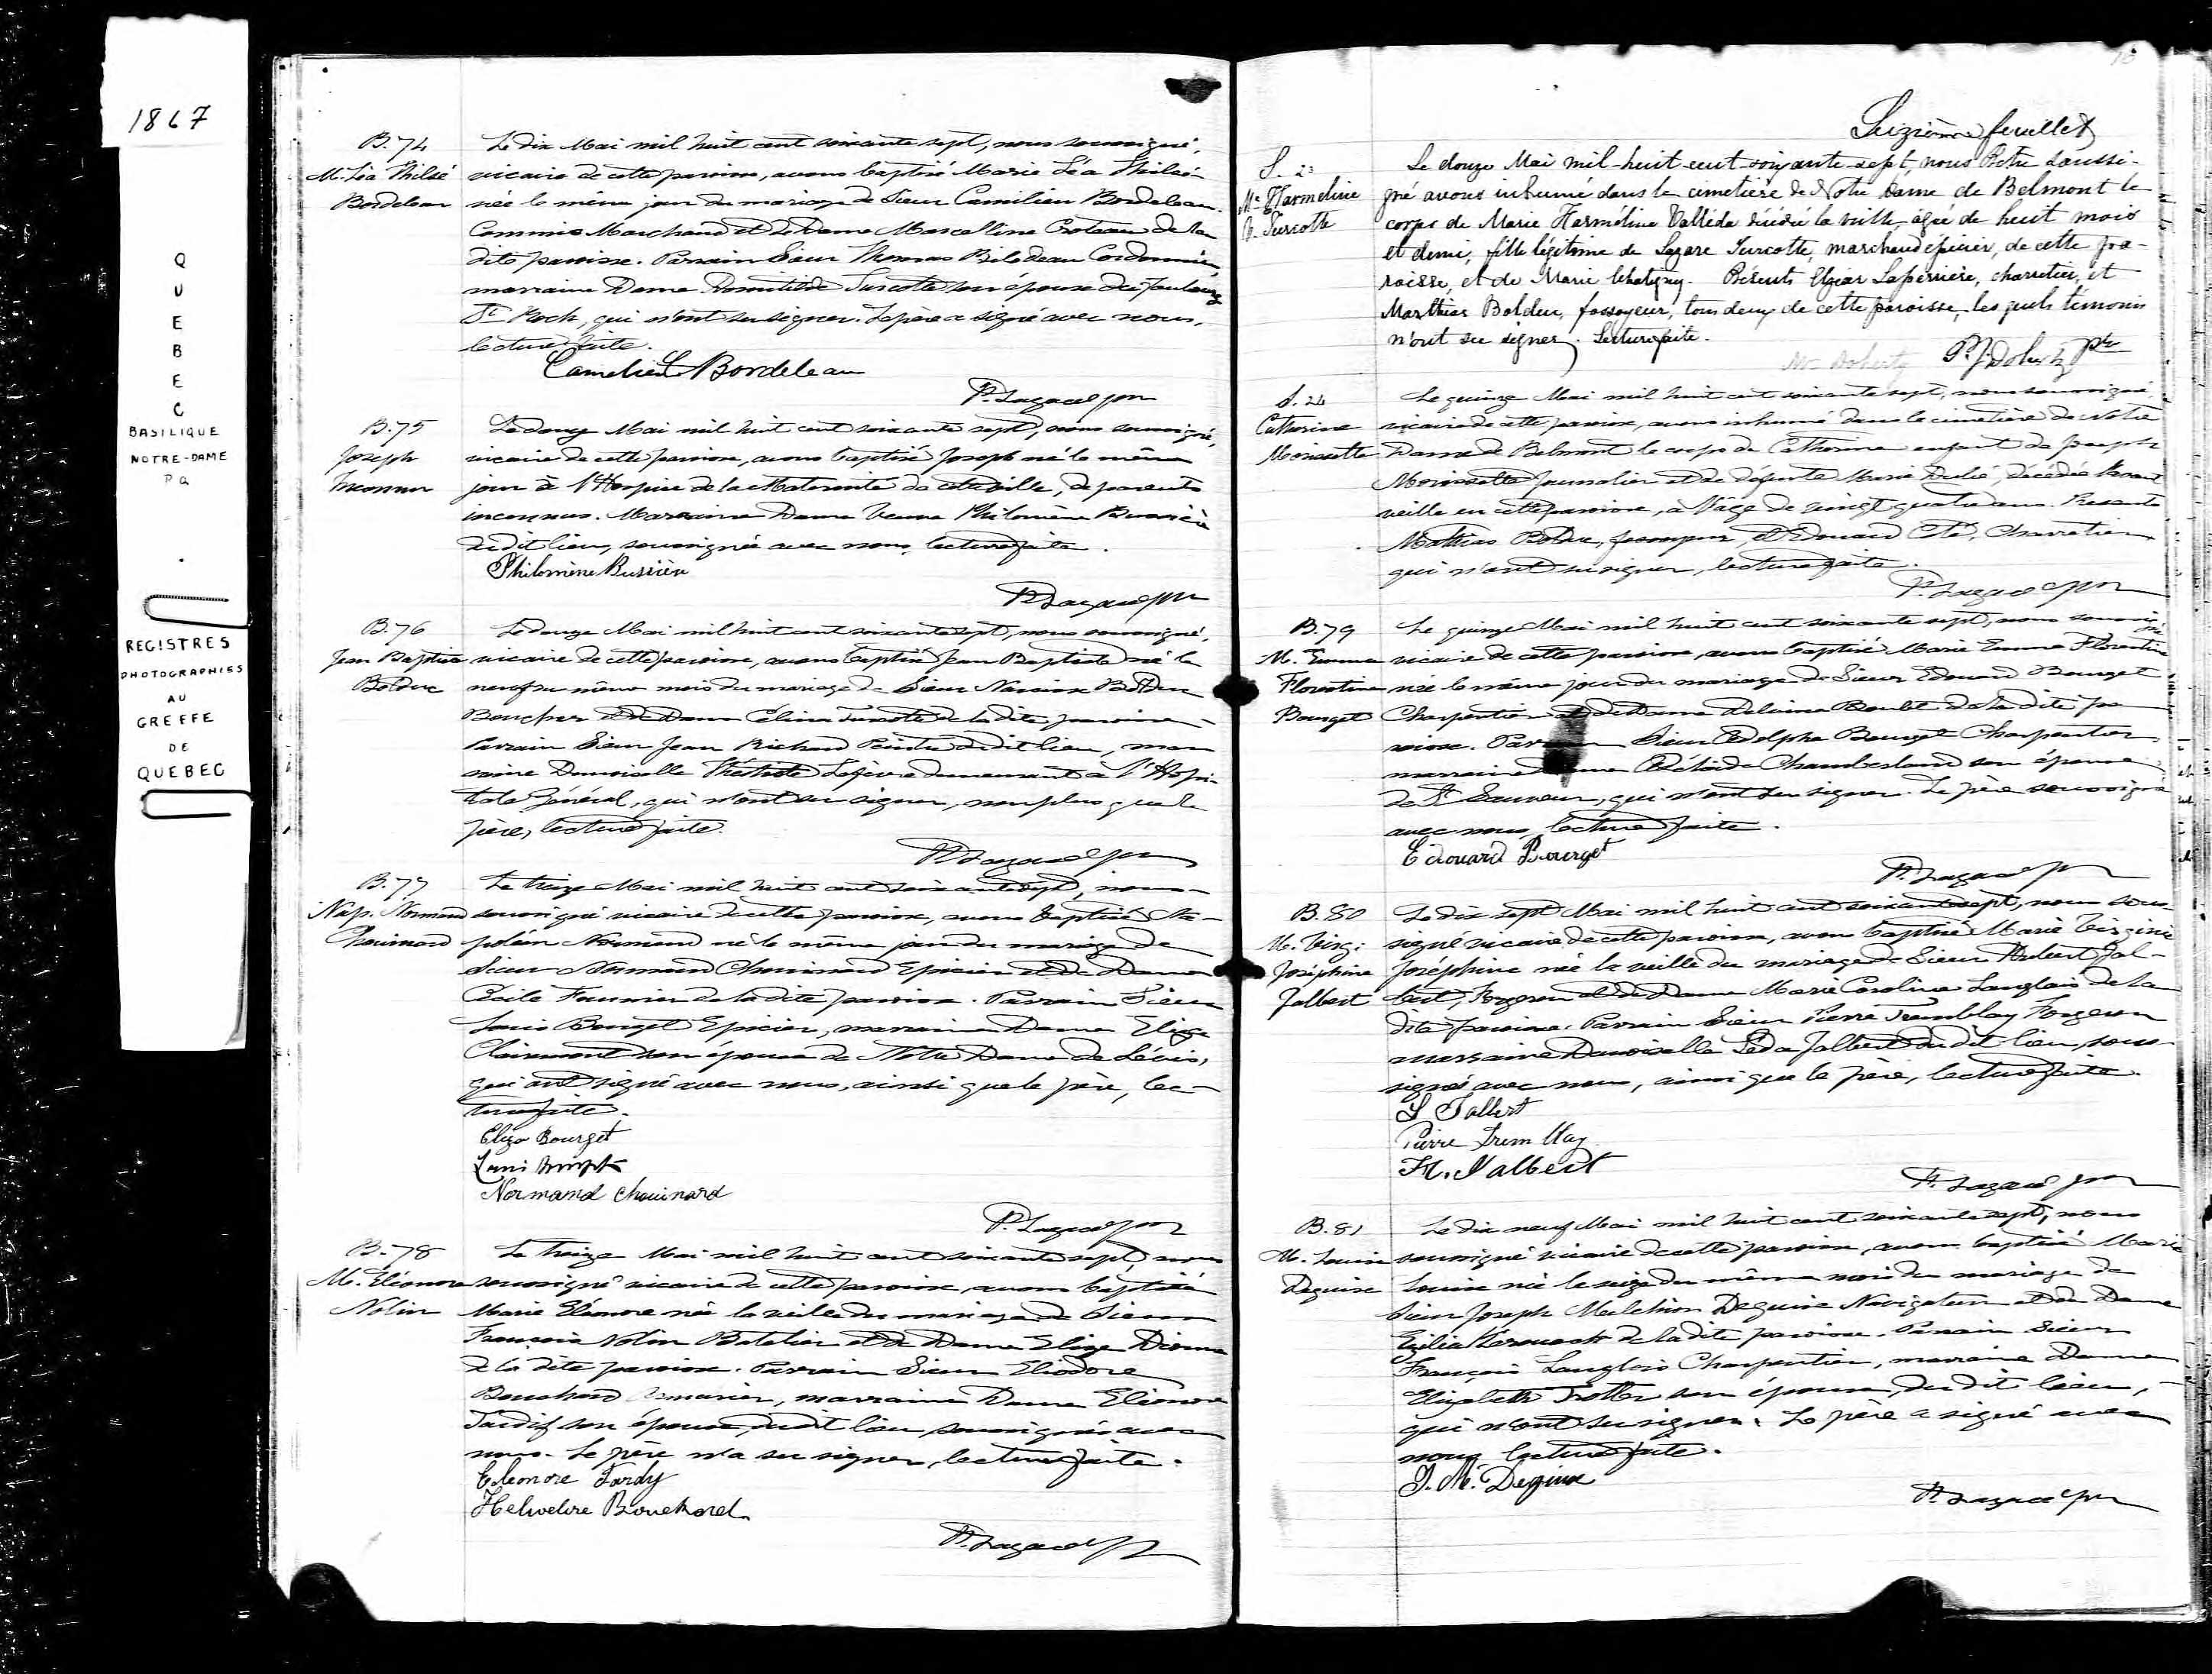 1867
QUEBEC
BASILIQUE
NOTRE-DAME
PQ
REGISTRES
PHOTOGRAPHIES
AU
GREFFE
DE
QUEBEC
B.74
M. Léa Philsé
Bordeleau
Le dix Mai mil huit cent soixante sept, nous soussigné,
vicaire de cette paroisse, avons baptisé Marie Léa
née le même jour du mariage de Sieur Camilien Bordeleau
Commis Marchand et de Dame Marcelline Croteau de la
dite paroisse. Parrain Sieur Thomas Bilodeau Cordonnier,
marraine Dame Domitilde Turcotte son épouse du faubourg
St Roch, qui n'ont su signer. Le père a signé avec nous,
lecture faite.
Camelien Bordeleau
P. Lagacé ptre
B.75
Joseph
Inconnu
Le douze Mai mil huit cent soixante sept, nous soussigné,
vicaire de cette paroisse, avons baptisé Joseph né le même
jour à l'Hospice de la Maternité de cette ville, de parents
inconnus. Marraine Dame Veuve Philomène Bussière
du dit lieu, soussignée avec nous, lecture faite.
Philomène Bussière
P. Lagacé ptre
B.76
Jean Baptiste
Bolduc
Le douze Mai mil huit cent soixante sept, nous soussigné,
vicaire de cette paroisse, avons baptisé Jean Baptiste né le
neuf du même mois du mariage de Sieur Narcisse Bolduc
Boucher et de Dame Célina Turcotte de la dite paroisse.
Parrain Sieur Jean Richard Peintre du dit lieu, mar
raine Demoiselle Lefèvre demeurant à l'Hôpi
tal Général, qui n'ont su signer, non plus que le
père, lecture faite.
P. Lagacé ptre
B.77
Nap. Normand
Chouinard
Le treize Mai mil huit cent soixante sept, nous
soussigné vicaire de cette paroisse, avons baptisé Na-
poléon Normand né le même jour du mariage de
Sieur Normand Chouinard Epicier et de Dame
Cécile Fournier de la dite paroisse. Parrain Sieur
Louis Bourget Epicier, marraine Dame Eliza
Clairmont son épouse de Notre Dame de Lévis,
qui ont signé avec nous, ainsi que le père, lec-
ture faite.
Eliza Bourget
Normand Chouinard
P. Lagacé ptre
B.78
M. Eléonore
Nolin
Le treize Mai mil huit cent soixante sept, nous
soussigné vicaire de cette paroisse, avons baptisé
Marie Eléonore née la veille du mariage de Sieur
François Nolin Batelier et de Dame Elize Dionne
de la dite paroisse. Parrain Sieur Eliodore
Bouchard, marraine Dame Eléonore
Tardif son épouse, du dit lieu soussignés avec
nous. Le père n'a su signer, lecture faite.
Eleonore Tardy
Helvodore Bouchard
P. Lagacé ptre
Seizième feuillet
S. 23
Me Harmeline
V. Turcotte
Le douze Mai mil-huit-cent-soixante-sept, nous Prêtre soussi-
gné avons inhumé dans le cimetière de Notre Dame de Belmont le
corps de Marie Harméline Valléda décédée la veille, agée de huit mois
et demi, fille légitime de Lazare Turcotte, marchand épicier, de cette pa-
roisse, et de Marie Chatigny. Présents Elzear Laperrière, charretier, et
Matthias Bolduc, fossoyeur, tous deux de cette paroisse, les quels témoins
n'ont su signer. Lecture faite.
Mr Doherty P. J. Doherty Ptre
S. 24
Catherine
Morissette
Le quinze Mai mil huit cent soixante sept, nous soussigné,
vicaire de cette paroisse, avons inhumé dans le cimetière de Notre
Dame de Belmont le corps de Catherine enfant de Joseph
Morissette Journalier et de défunte Marie, décédée l'avant
veille en cette paroisse, à l'âge de vingt quatre ans. Présents
Matthias Bolduc, fossoyeur, et Edouard Côté, Charretier
qui n'ont su signer, lecture faite.
P. Lagacé ptre
B.79
M. Emma
Florentine
Bourget
Le quinze Mai mil huit cent soixante sept, nous soussigné
vicaire de cette paroisse, avons baptisé Marie Emma Florentine
née le même jour du mariage de Sieur Edouard Bourget
Charpentier et de Dame Delaina Boulet de la dite pa
roisse. Parrain Sieur Adolphe Bourget Charpentier,
marraine Dame Chamberland son épouse
de St Sauveur, qui n'ont su signer. Le père soussigné
avec nous, lecture faite.
Edouard Bourget
P. Lagacé ptre
B.80
M. Virg:
Joséphine
Jalbert
Le dix sept Mai mil huit cent soixante sept, nous sous-
signé vicaire de cette paroisse, avons baptisé Marie Virginie
Joséphine née la veille du mariage de Sieur Hubert Jal-
bert, Forgeron et de Dame Marie Caroline Langlais de la
dite paroisse. Parrain Sieur Pierre Tremblay Forgeron
marraine Demoiselle Léda Jalbert du dit lieu, sous-
signés avec nous, ainsi que le père, lecture faite.
L Jalbert
Pierre Tremblay
H. Jalbert
P. Lagacé ptre
B.81
M. Louise
Deguise
Le dix neuf Mai mil huit cent soixante sept, nous
soussigné vicaire de cette paroisse, avons baptisé Marie
Louise née le seize du même mois du mariage de
Sieur Joseph Melchior Deguise Navigateur et de Dame
de la dite paroisse. Parrain Sieur
François Langlois Charpentier, marraine Dame
Elizabeth Trotter son épouse, du dit lieu,
qui n'ont su signer. Le père a signé avec
nous lecture faite.
J. M. Deguise
P. Lagacé ptre